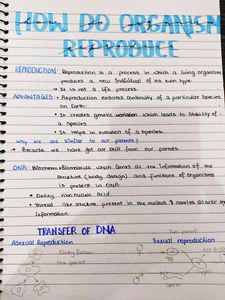 HOW DO ORGANISM
REPRODUCE
REPRODUCTION: Reproduction is a process in which a living organism
produces a new individual of its own type.
→ It is not a life process.
ADVANTAGES: Reproduction ensures continuity of a particular species
on Earth.
It creates genetic variation which leads to stability of
a species
It helps in evolution of a species.
Why we are similar to our parents?
→ Because we have got our DNA from our parents.
DNA: Biochemical molecule which carries all the information of the
structure (body design) and functions of organisms
is present in DNA
Deoxy ribo nucleic Acid
Thread like structure present in the nucleus & carries
information.
TRANSFER OF DNA
Asexual Reproduction
Sexual reproduction
Binary fission
One parent
Two parent
Sperm